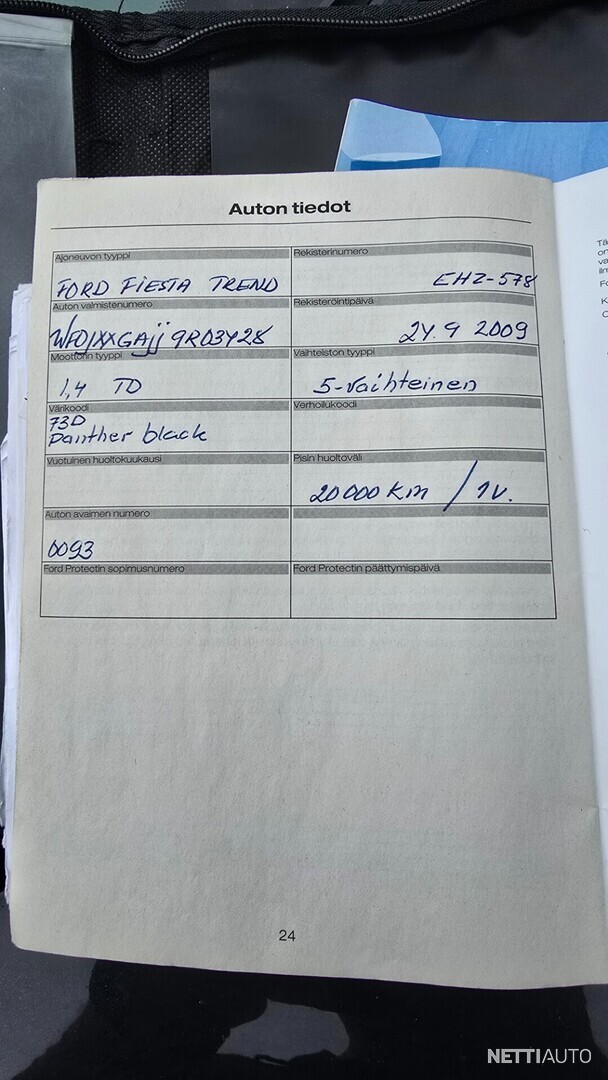 Auton tiedot
Ajoneuvon tyyppi
FORD FIESTA TREND
Rekisterinumero
EHZ-578
Auton valmistenumero
WFOJXXGAjj9R03428
Rekisteröintipäivä
24.9 2009
Moottorin tyyppi
1,4 TD
Vaihteiston tyyppi
5-vaihteinen
Värikoodi
73D
Panther black
Verhoilukoodi
Vuotuinen huoltokuukausi
Pisin huoltoväli
20 000 km / 1v.
Auton avaimen numero
0093
Ford Protectin sopimusnumero
Ford Protectin päättymispäivä
24
NETTIAUTO